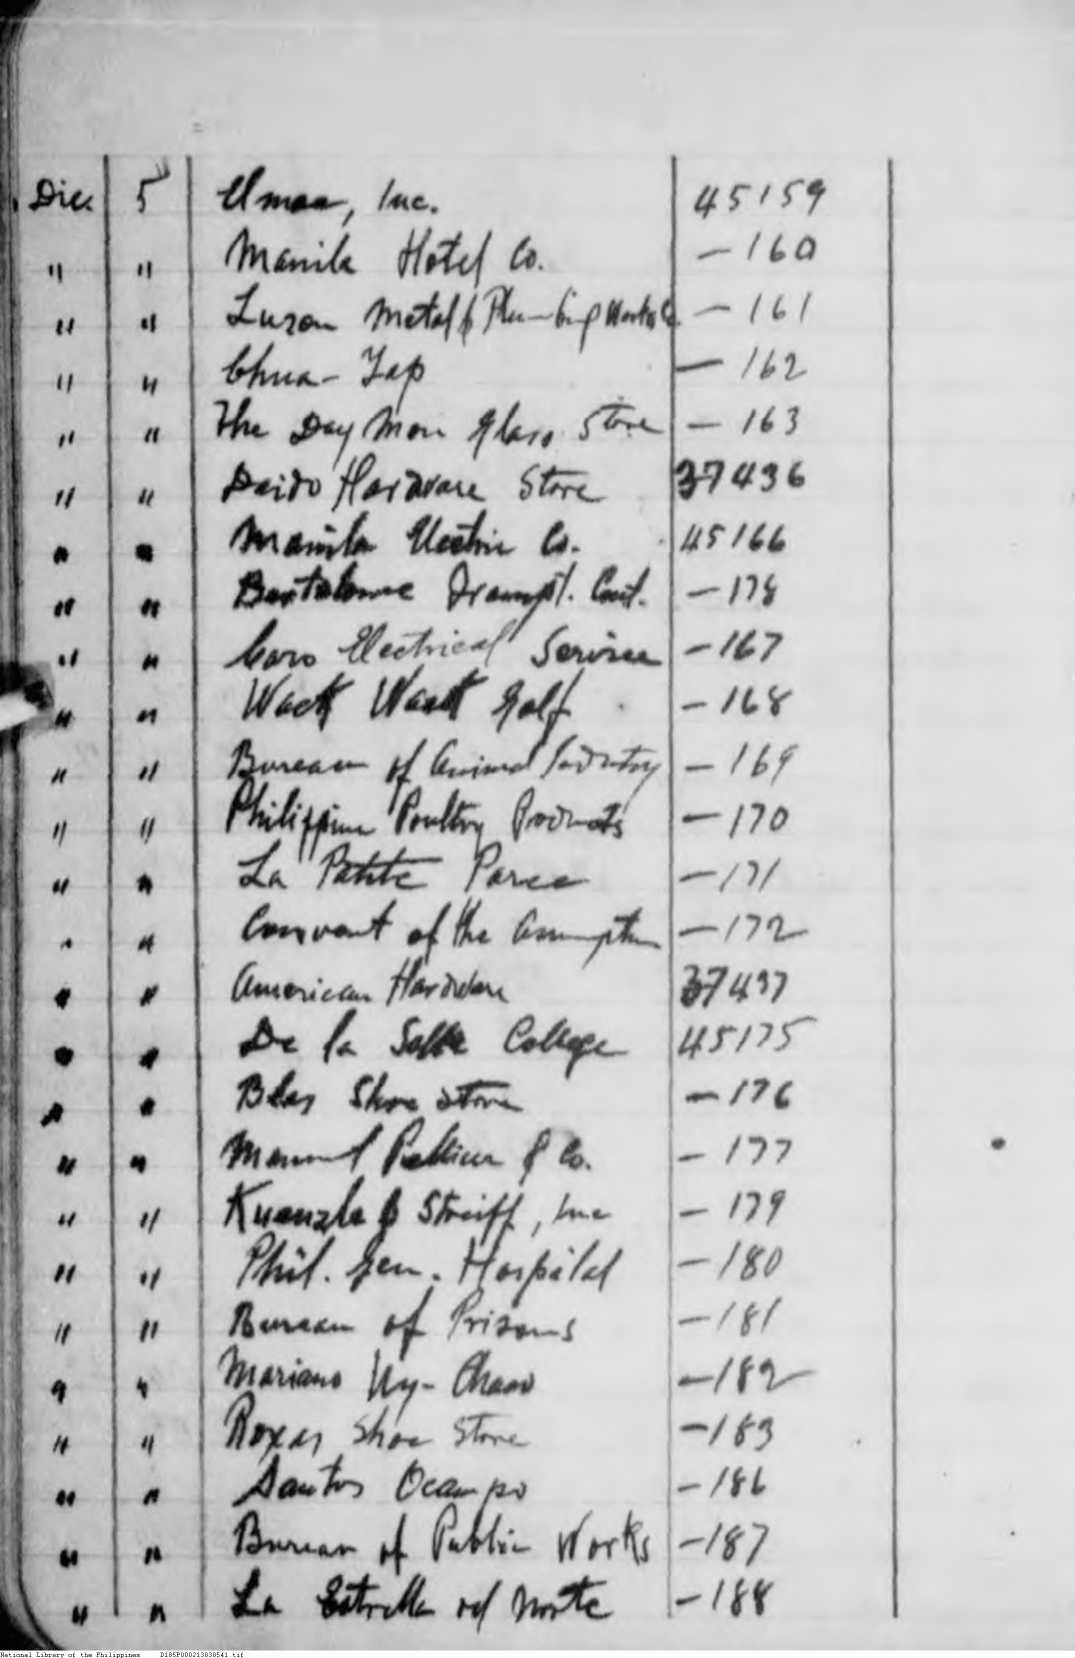 Dic. 5 Elmac, Inc. 45159
" " Manila Hotel Co. - 160
" " Luzon Metal & Plumbing Works Co. - 161
" " Chua-Yap - 162
" " The Day Mon Glass Store - 163
" " Daido Hardware Store 37436
" " Manila Electric Co. 45166
" " Bartolome Transpt. Cont. - 178
" " Caro Electrical Service - 167
" " Wack Wack Golf - 168
" " Bureau of Animal Industry - 169
" " Philippine Poultry Products - 170
" " La Petite Paree - 171
" " Convent of the Assumption - 172
" " American Hardware 37437
" " De la Salle College 45175
" " Blas Shoe Store - 176
" " Manuel Pellicer & Co. - 177
" " Kuenzle & Streiff, Inc - 179
" " Phil. Gen. Hospital - 180
" " Bureau of Prisons - 181
" " Mariano Uy-Chaco - 182
" " Roxas Shoe Store - 183
" " Santos Ocampo - 186
" " Bureau of Public Works - 187
" " La Estrella del Norte - 188
National Library of the Philippines D185P000213838541.tif